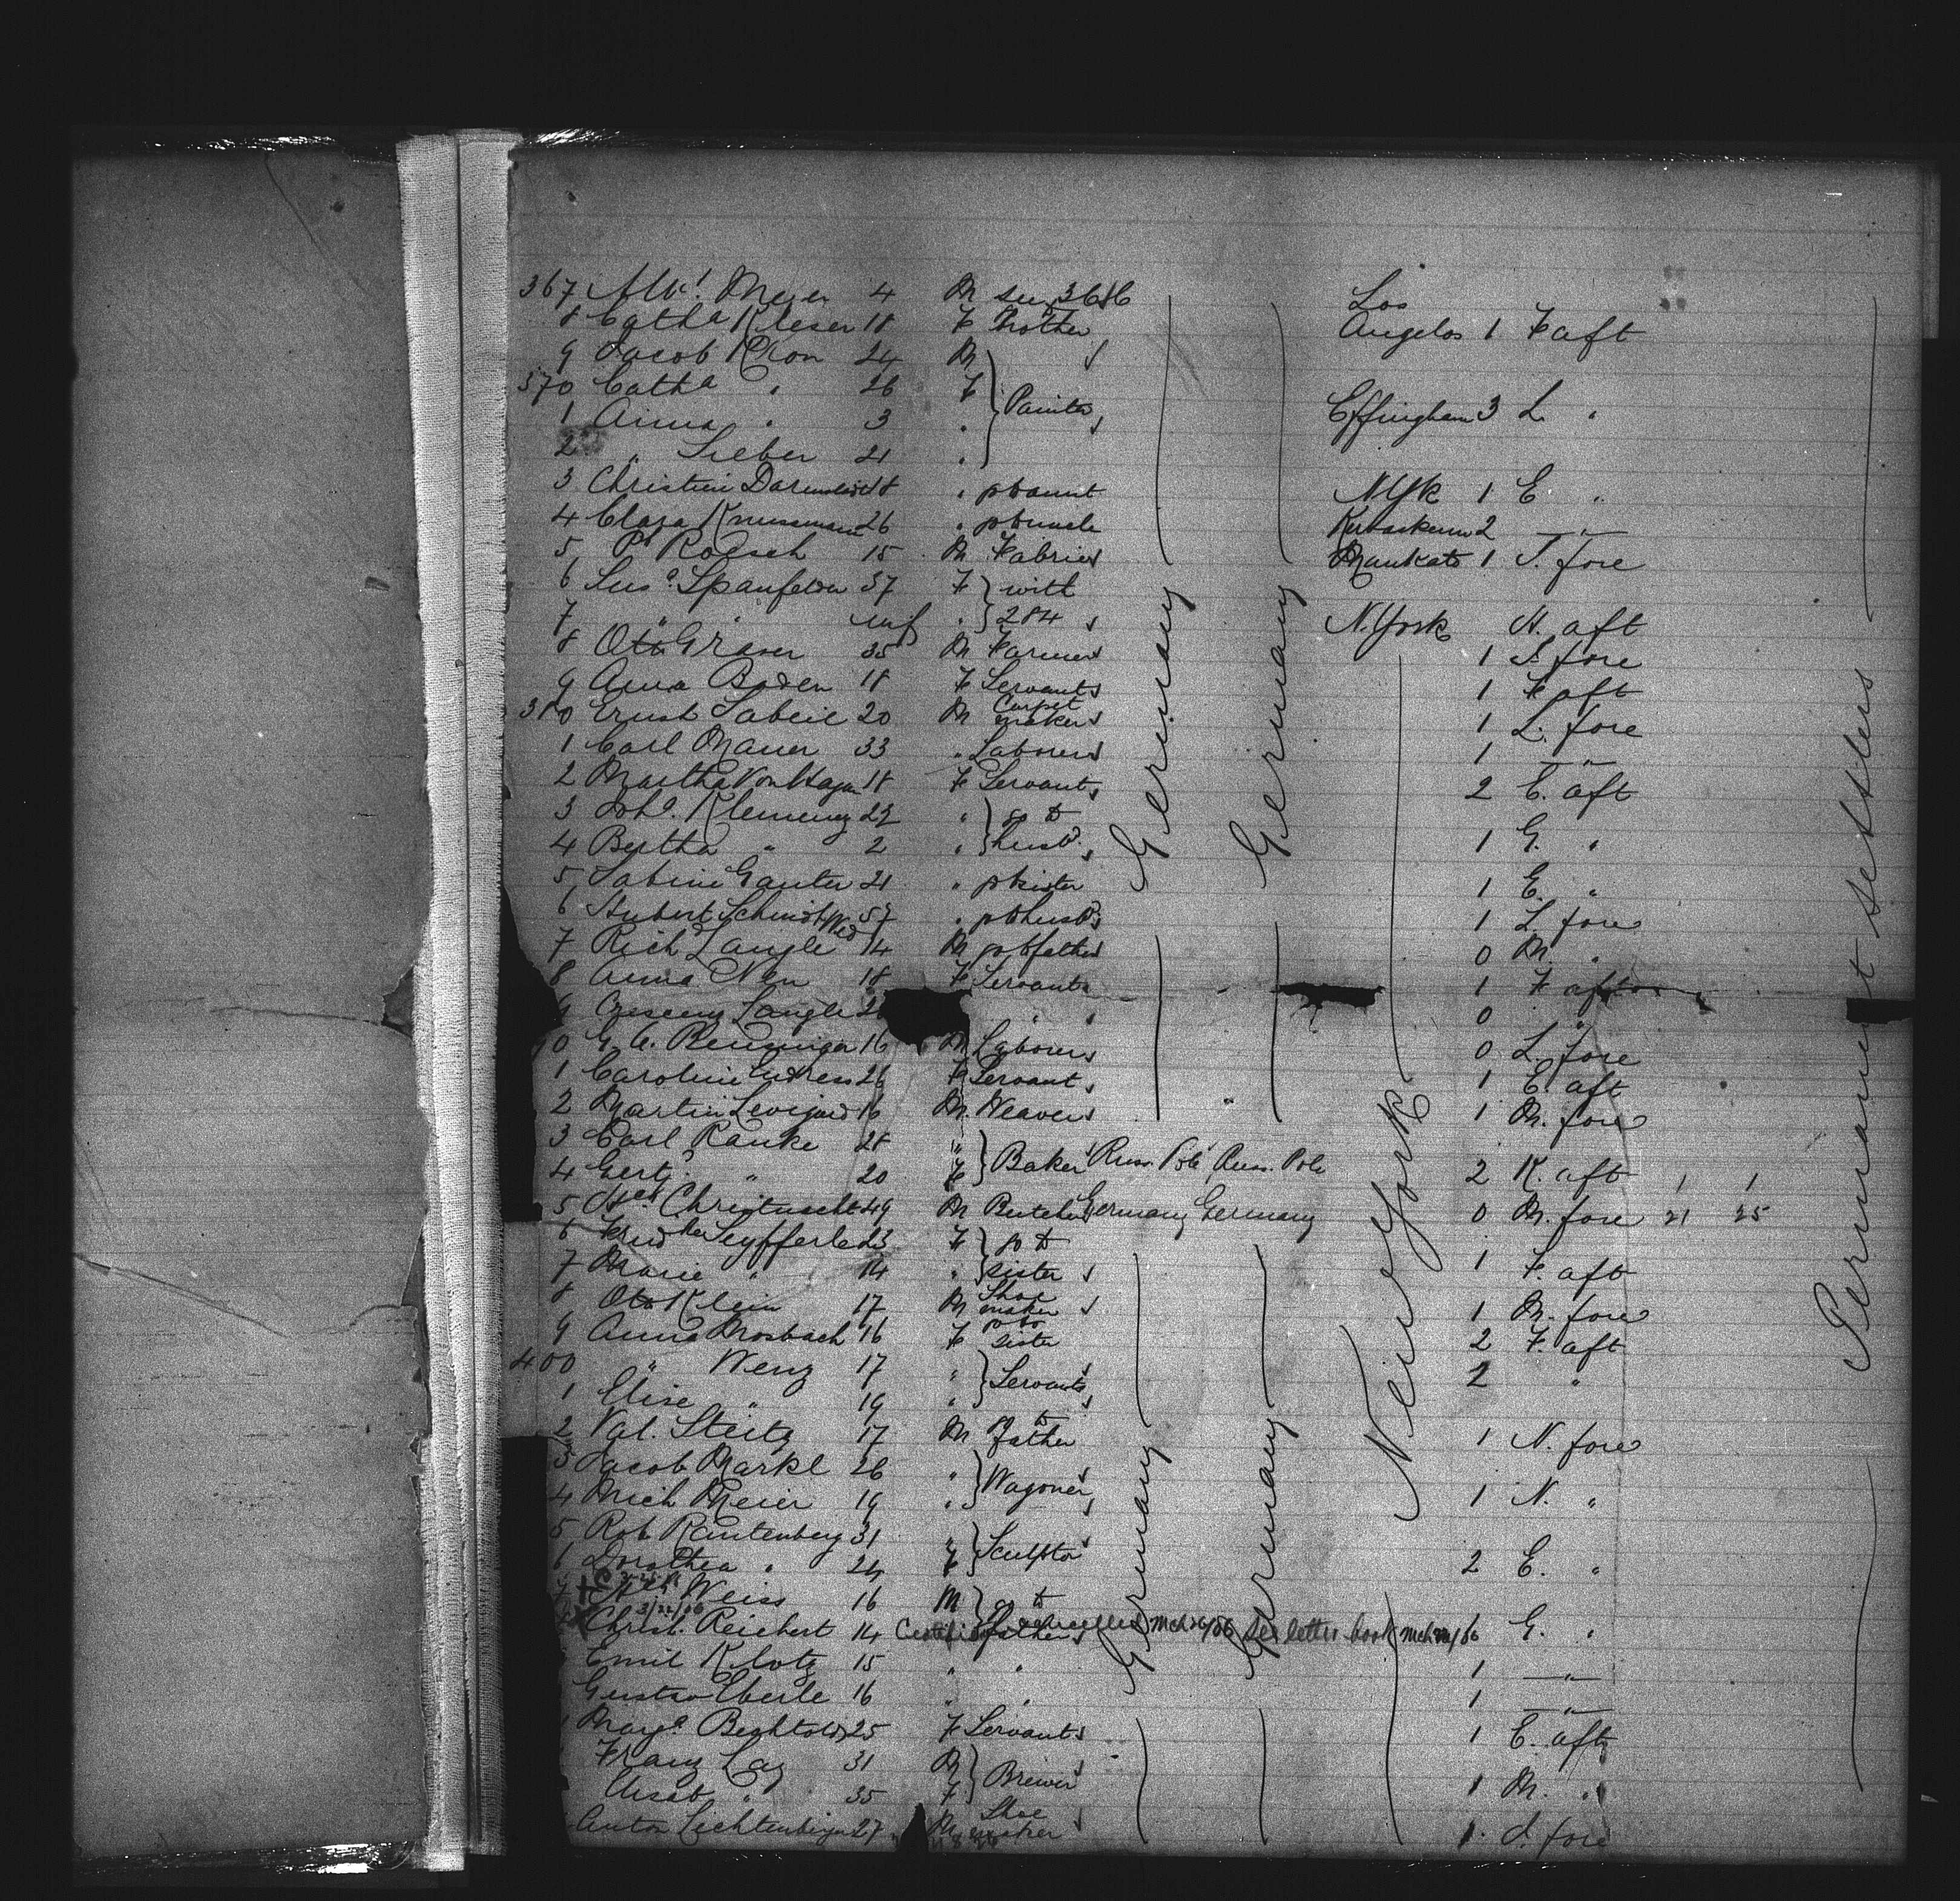 367 Meier 4 M see 366
Los
8 Cath<sup>a</sup> Kleser 18 F Mother Angelos 1 F aft
9 Jacob Kron 24 M
370 Cath<sup>a</sup> " 26 F
1 Anna " 3 " Painter Effingham 3 L "
2 " Sieber 21 "
3 Christine 18 " pt aunt N Yk 1 E "
4 Clara Knussmann 26 " pt uncle 2 — " —
5 P. Roesch 15 M Mankato 1 S. fore
6 Sus<sup>a</sup>. 37 F with
7 " " inf " 284 N. York N. aft
8 Otto Graser 35 M Farmer 1 S. fore
9 Anna Boden 18 F Servant 1 F aft
380 Ernst 20 M Carpet maker 1 L. fore
1 Carl Mauer 33 " Laborer 1 — " —
2 Martha Von Hagen 18 F Servant 2 E. aft
3 Joh<sup>a</sup>. Klemenz 22 " go to
4 Bertha " 2 " husb<sup>d</sup>. 1 G. "
5 Sabine Ganter 21 " pt sister 1 E. "
6 Hubert Schmidt Wed 57 " pt husb<sup>d</sup> 1 L. fore
7 Rich Langle 14 M pt father 0 M. "
8 Anna Nen 18 F Servant 1 F aft
9 Crescenz Langle 2 " 0 "
0 G. A. 16 M Laborer 0 L. fore
1 Caroline Endress 26 F Servant 1 E. aft
2 Martin 16 M. Weaver 1 M. fore
3 Carl Ranke 28 "
4 Gert. " 20 F Baker Russ. Pole Russ. Pole 2 K. aft 1 1
5 49 M Butcher Germany Germany 0 M. fore 21 25
6 Seyfferle 23 F go to
7 Marie " 14 " sister 1 F. aft
8 Otto Klein 17 M Shoe maker 1 M. fore
9 Anna Mosbach 16 F go to sister 2 F. aft
400 " Wenz 17 "
1 Elise " 19 " Servants 2 "
2 Val. Steitz 17 M go to father 1 N. fore
3 Jacob Markl 26 "
4 Mich Meier 19 " Wagoner 1 N. "
5 Rob. Rautenberg 31 "
6 Dorothea " 24 F Sculptor 2 E. "
7 Weiss 16 M go to
3/22/86
Christ. Reichert 14 father cancelled Mch 26/86 see letter book Mch /86 G. "
Emil Klotz 15 " " 1 — " —
Gustav Eberle 16 " " 1 — " —
Marg<sup>a</sup> Bechtold 25 F Servant 1 E. aft
Franz Lay 31 M
Elisab. " 35 F Brewer 1 M. "
Anton Lichtenberger 27 M Shoe maker 1. S. fore
Germany
Germany
Germany
Germany
New York
Permanent settlers